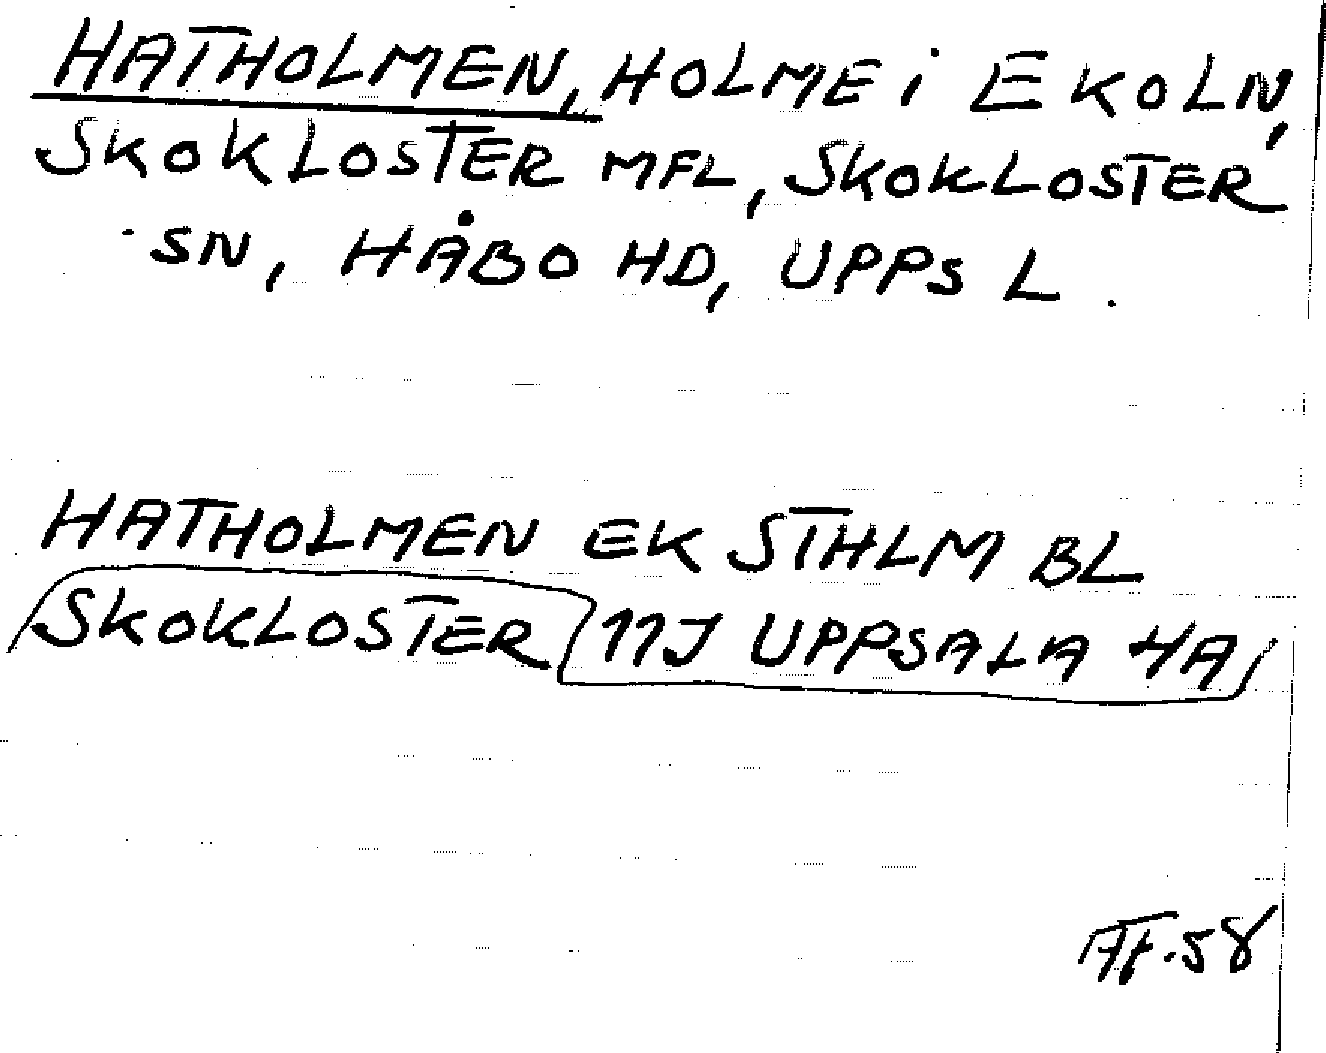 HATHOLMEN, HOLME i EKOLN,
SKOKLOSTER MFL, SKOKLOSTER
SN, HÅBO HD, UPPS L.
HATHOLMEN EK STHLM BL
SKOKLOSTER 11J UPPSALA HA
58